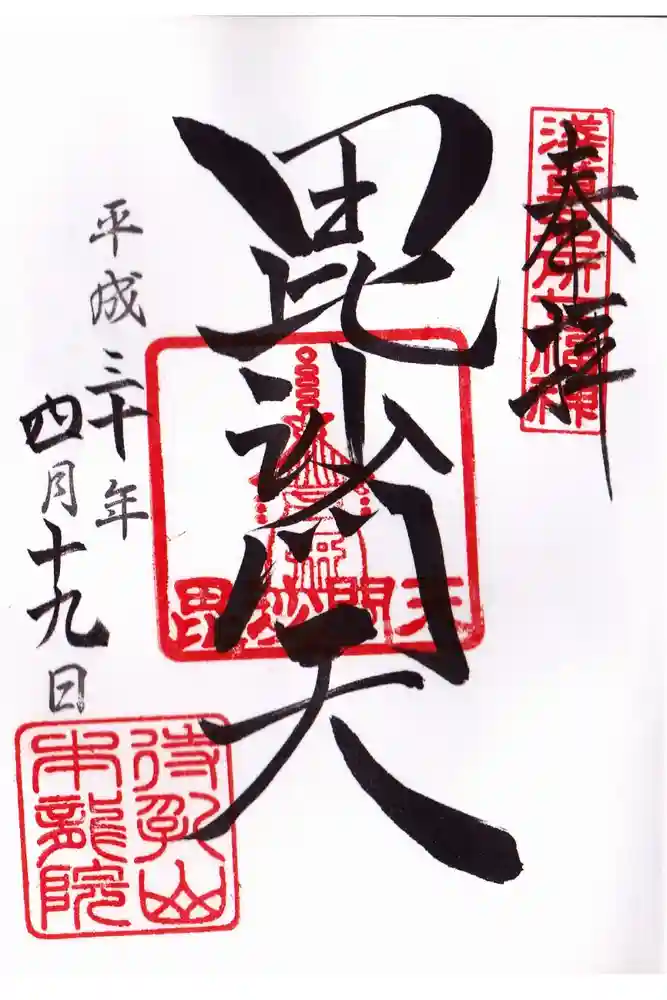 奉拝
浅草名所七福神
毘沙門天
毘沙門天
平成三十年
四月十九日
待乳山
本龍院